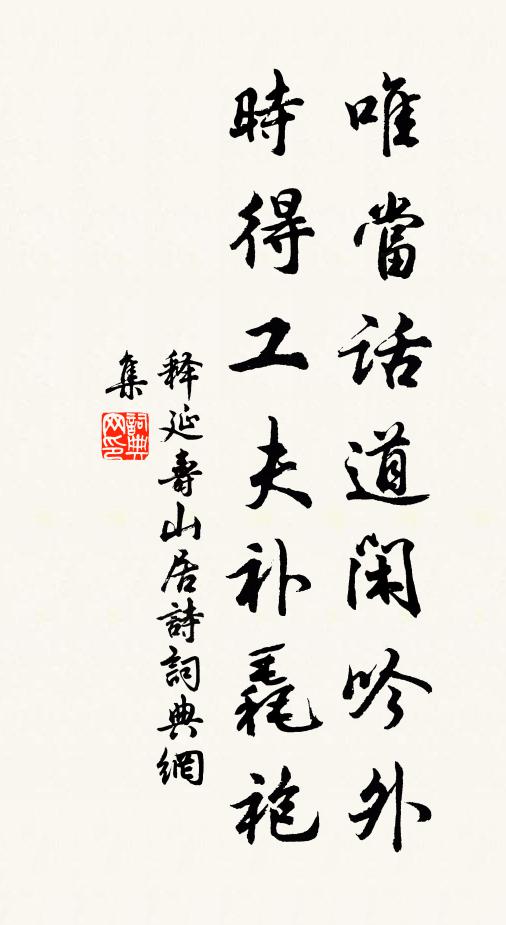 唯當話道閑吟外
時得工夫补毳袍
释延壽山居詩詞典網
集
詞典网印